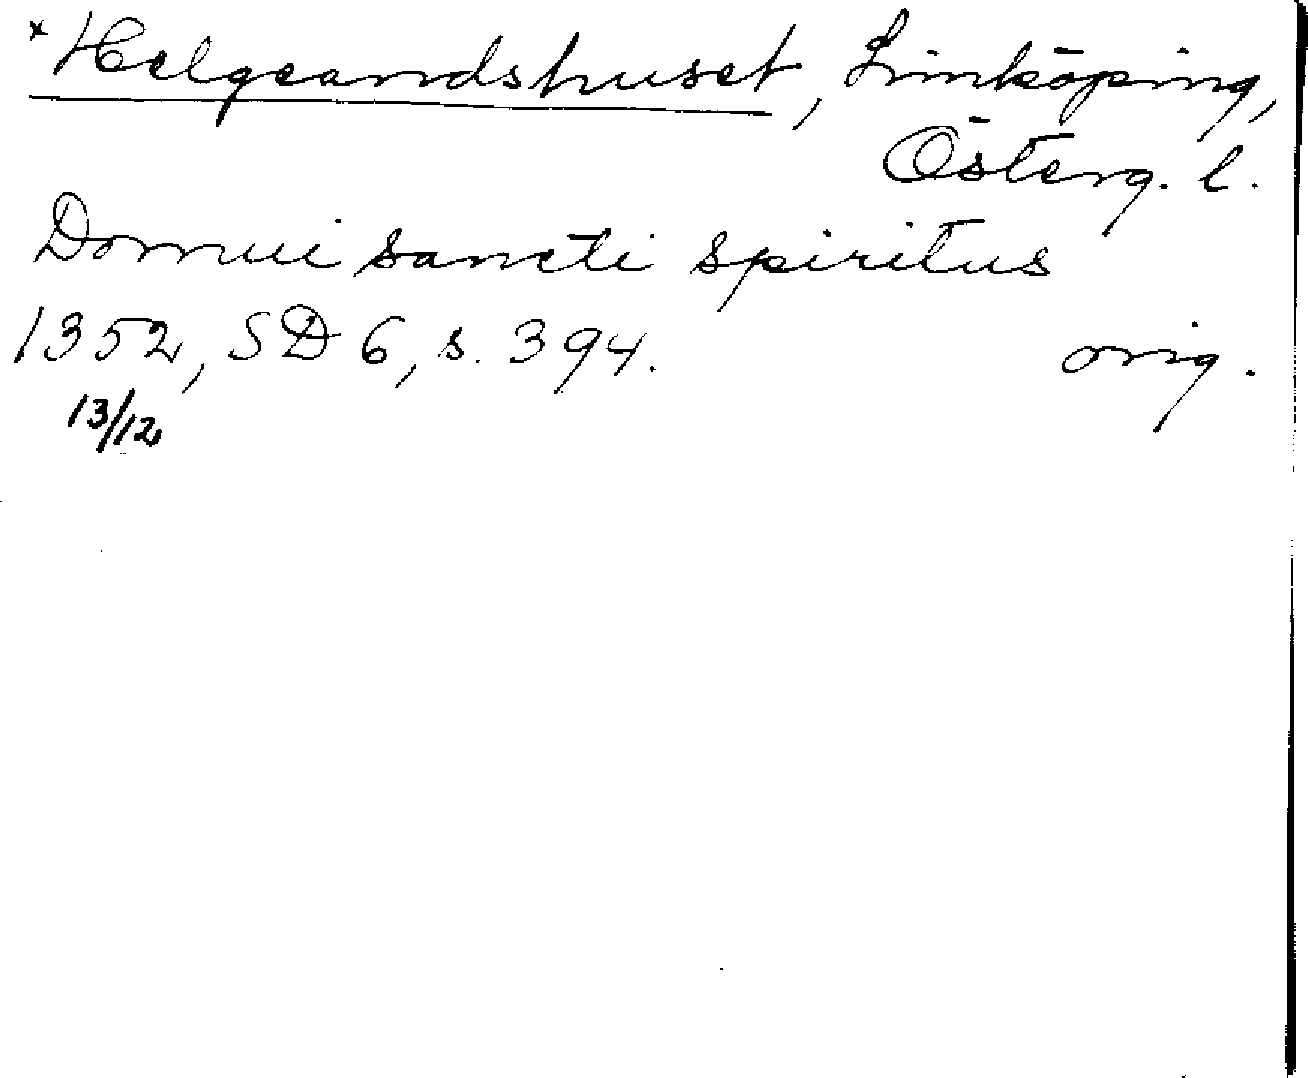 *Helgeandshuset, Linköping,
Österg. l.
Domui sancti spiritus
1352, SD 6, s. 394. orig.
13/12